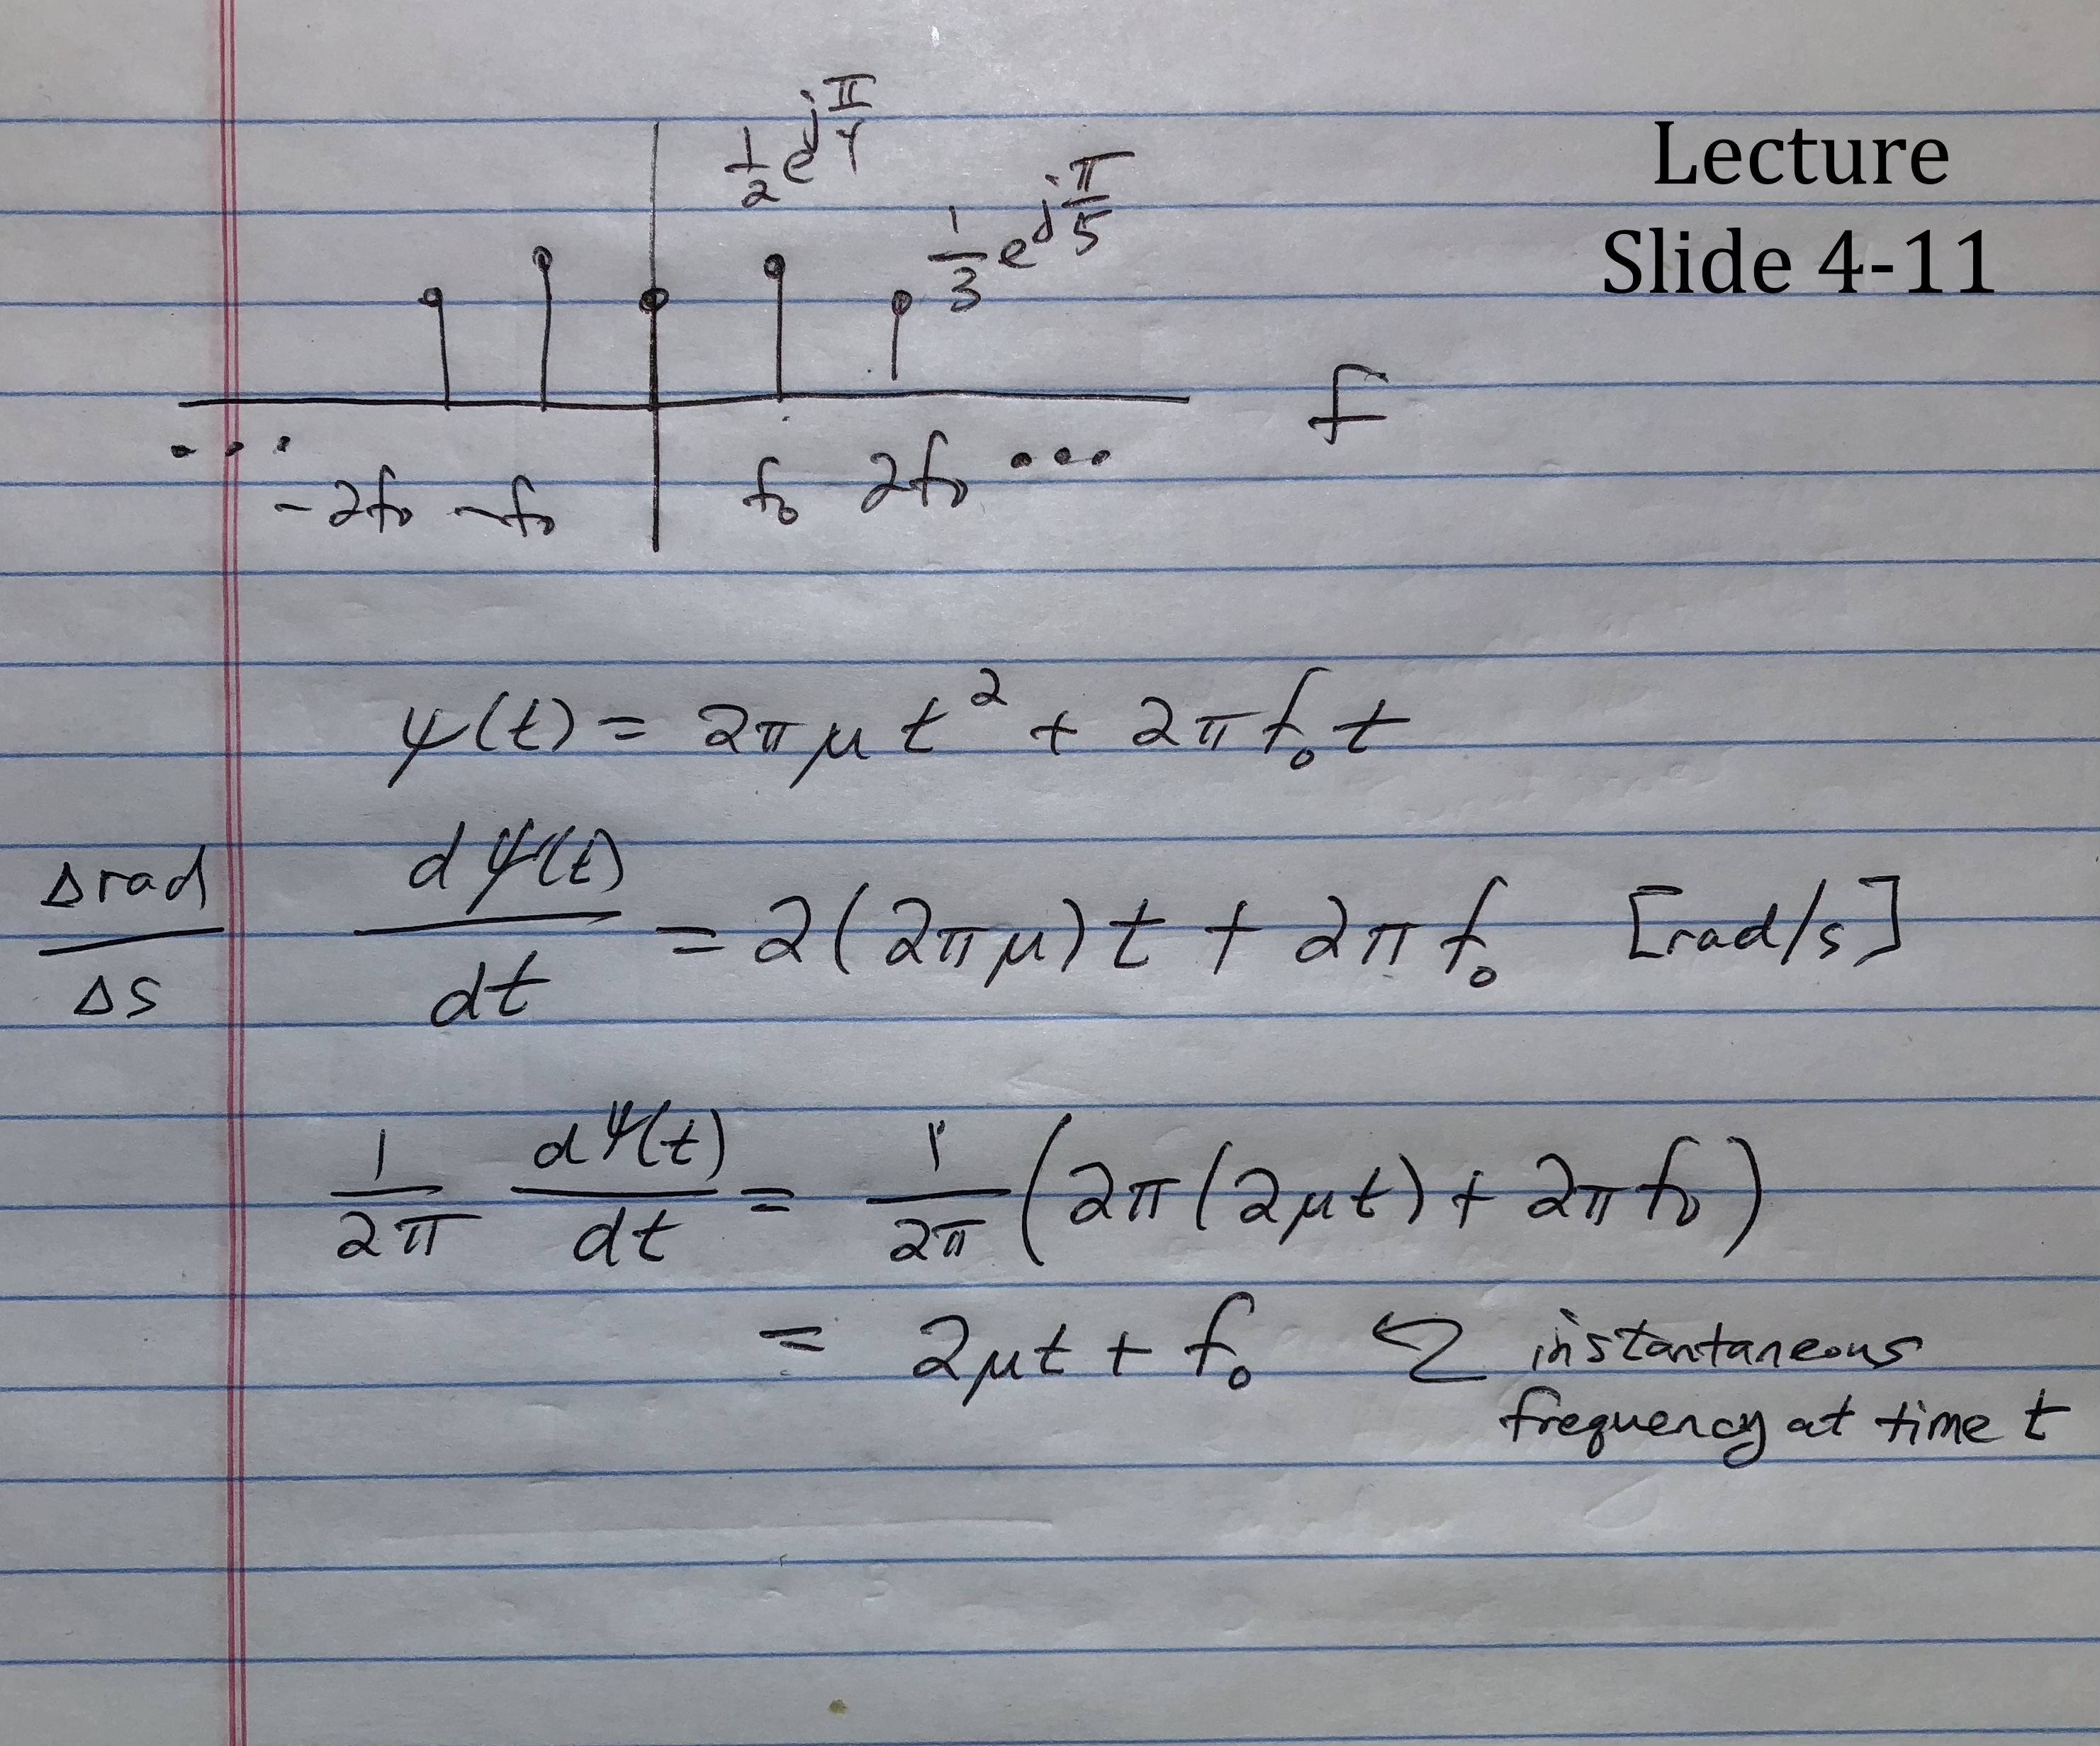 Lecture
Slide 4-11
1/2 e^{jπ/4}
1/3 e^{jπ/5}
f
... -2f₀ -f₀ f₀ 2f₀ ...
ψ(t) = 2πμt² + 2πf₀t
Δrad/Δs dψ(t)/dt = 2(2πμ)t + 2πf₀ [rad/s]
1/2π dψ(t)/dt = 1/2π (2π(2μt) + 2πf₀)
= 2μt + f₀ ↩ instantaneous
frequency at time t